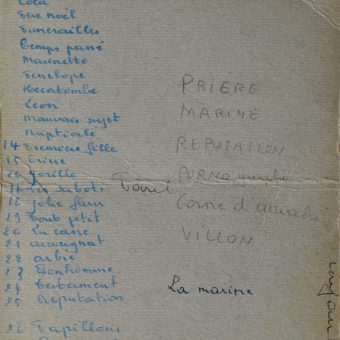 Père noël
Funerailles
Temps passé
Marinette
Penelope
Hecatombe
Leon
Mauvais sujet
Nuptiale
14 Première fille
15 Prière
16 Gorille
17 Les sabots
18 Jolie fleur
19 Tout petit
20 La cane
21 auvergnat
22 arbre
23 Bonhomme
24 Testament
25 Reputation
Papillons
PRIERE
MARINE
REPUTATION
Corne d'aurochs
VILLON
La marine